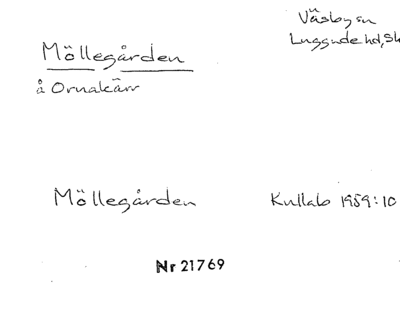 Väsby sn
Luggude hd, Sk
Möllegården
å Ornakärr
Möllegården Kullab 1959:10
Nr 21769